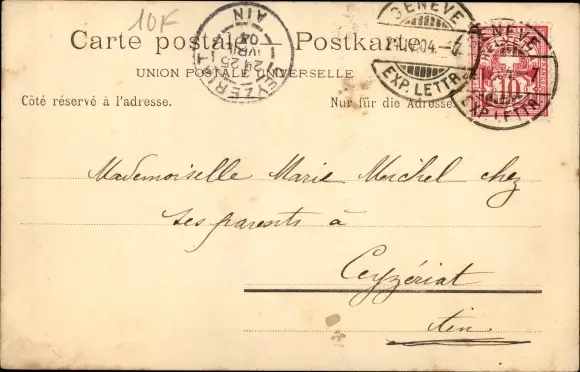 10F
Carte postale. Postkarte.
UNION POSTALE UNIVERSELLE
Côté réservé à l'adresse. Nur für die Adresse.
CEYZERIAT
AIN
GENÈVE
EXP. LETTR.
GENÈVE
EXP. LETTR.
HELVETIA
10
Mademoiselle Marie Michel chez
ses parents à
Ceyzériat
Ain